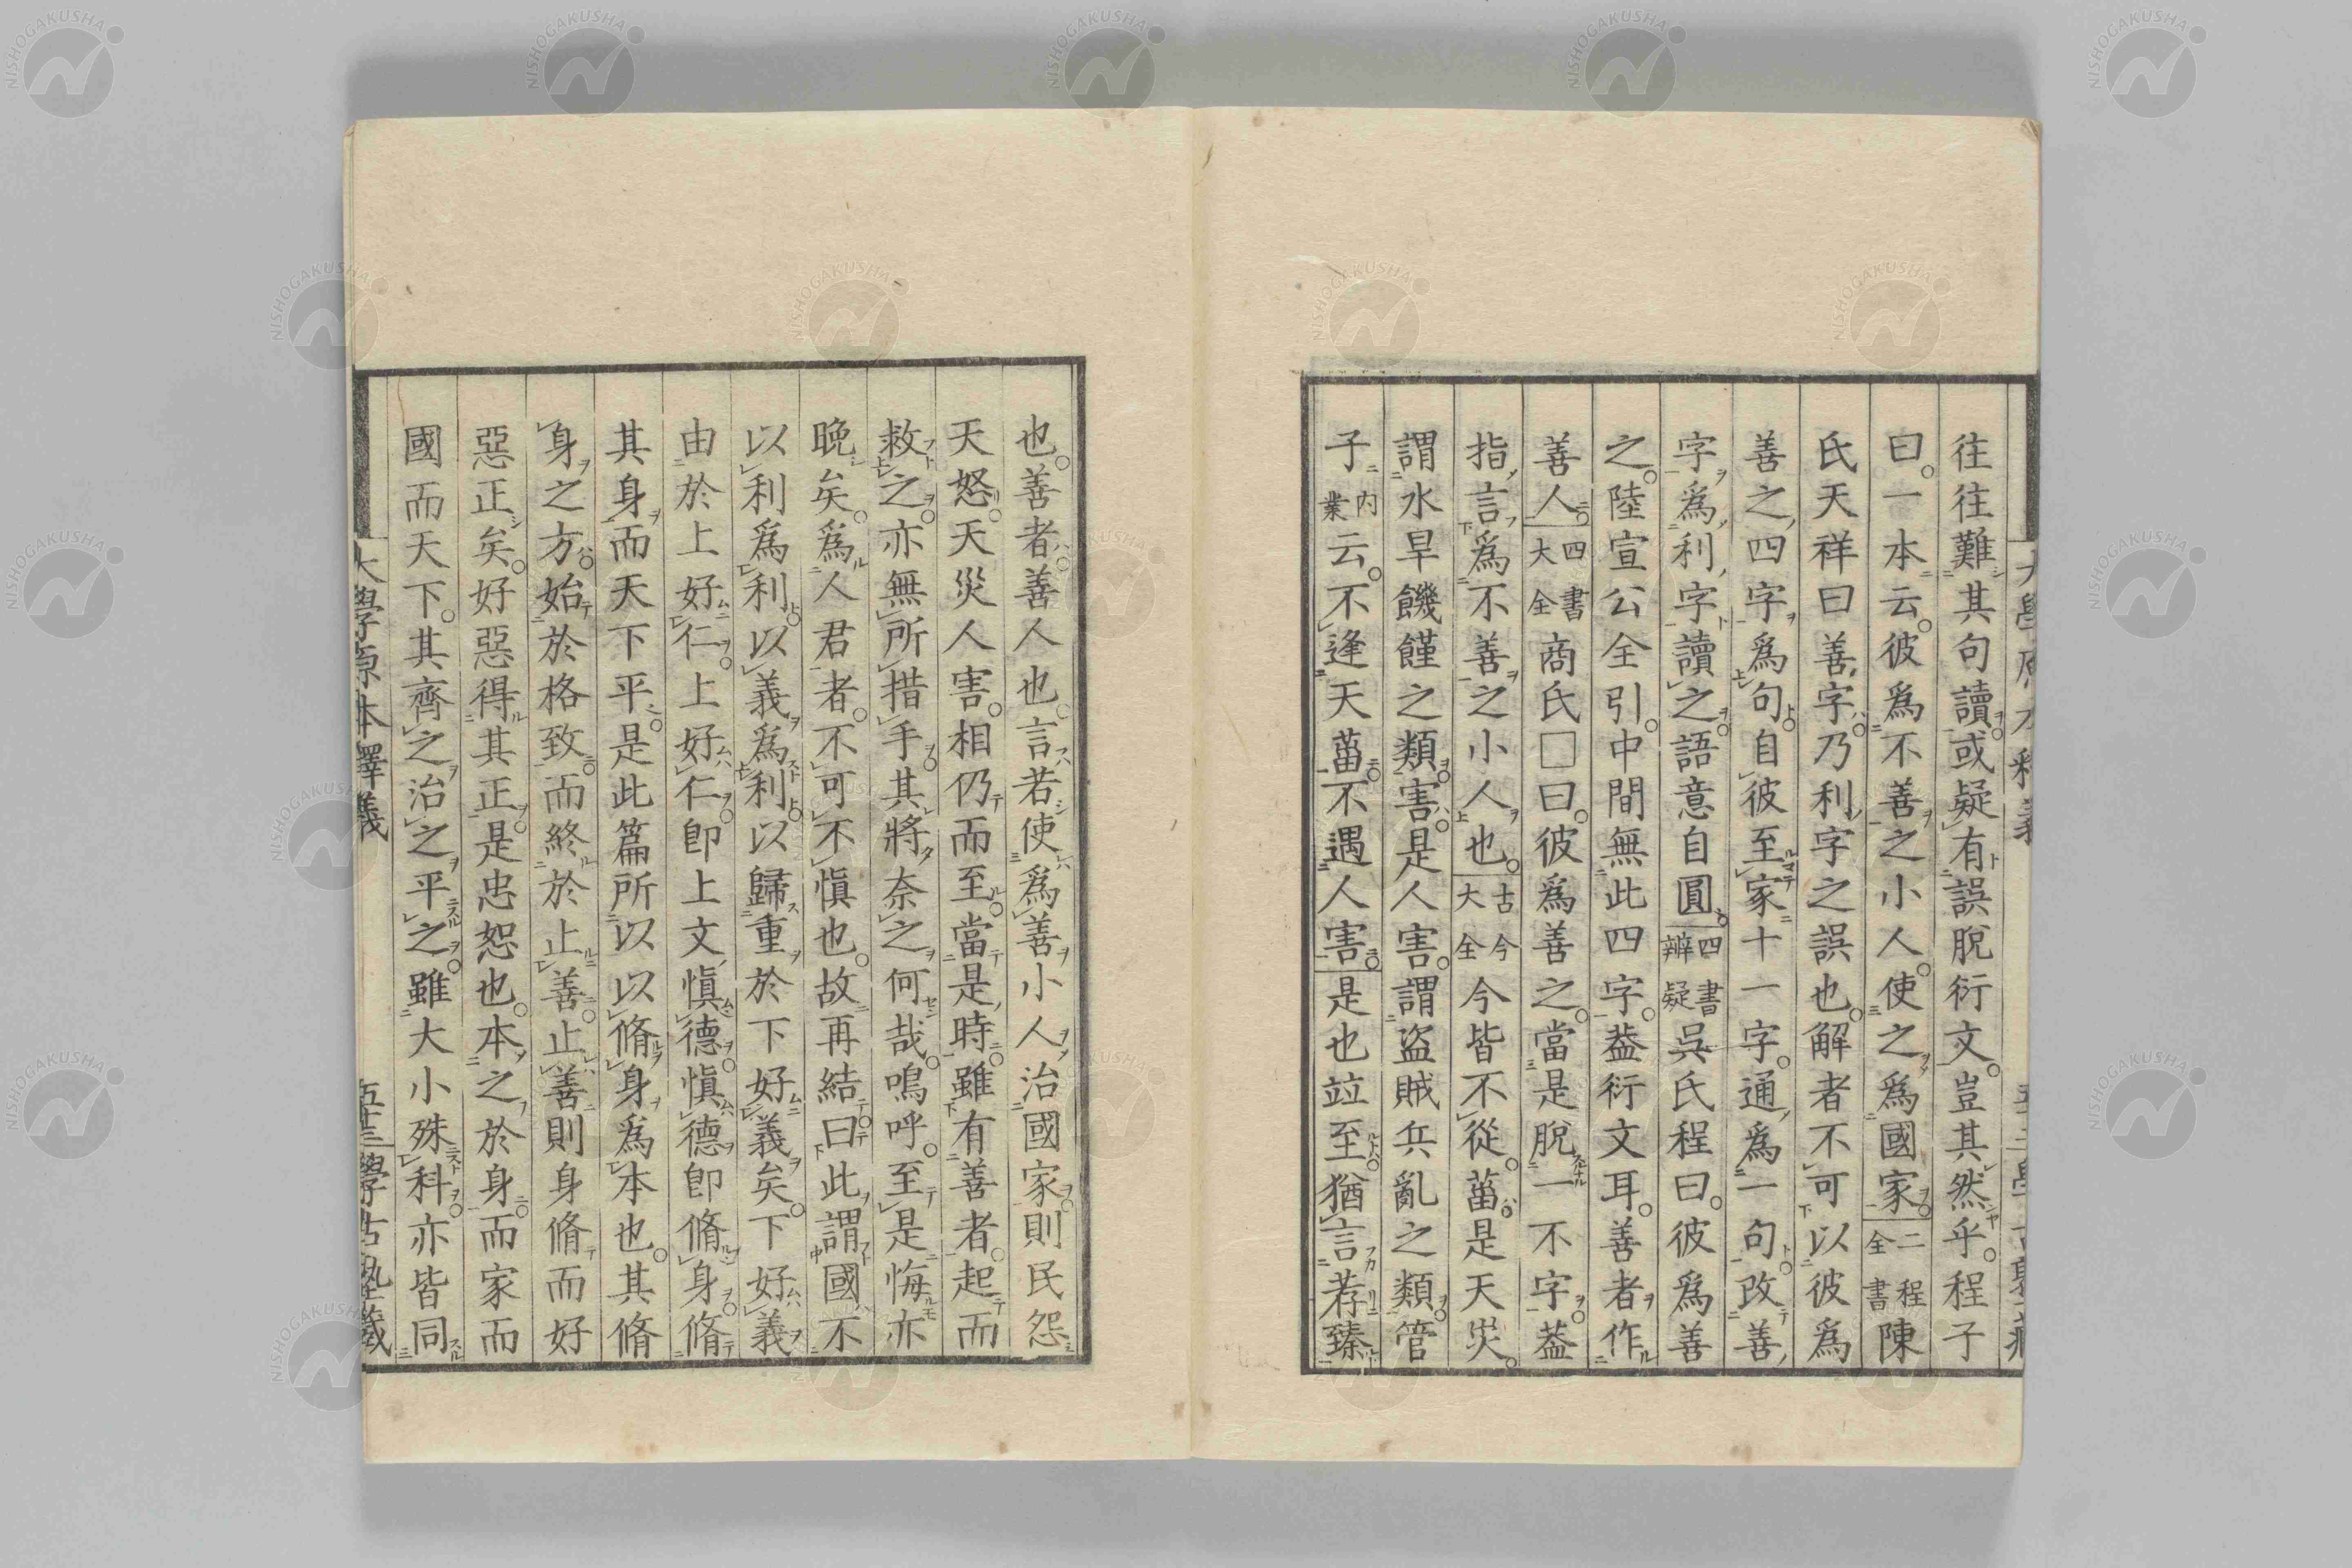 往往難其句讀或疑有誤脫衍文。豈其然乎。程子
曰。一本云。彼爲不善之小人。使之爲國家。二程全書陳
氏天祥曰善字。乃利字之誤也。解者不可以彼爲
善之四字爲句。自彼至家十一字。通爲一句。改善
字爲利字讀之。語意自圓。四書辨疑吳氏程曰。彼爲善
之。陸宣公全引。中間無此四字。葢衍文耳。善者作
善人。四書大全商氏□曰。彼爲善之。當是脫一不字。葢
指言爲不善之小人也。古今大全今皆不從。菑是天災。
謂水旱饑饉之類。害。是人害。謂盜賊兵亂之類。管
子內業云。不逢天菑。不遇人害。是也竝至猶言荐臻
也。善者。善人也。言若使爲善小人治國家。則民怨
天怒。天災人害。相仍而至。當是時。雖有善者。起而
救之。亦無所措手。其將奈之何哉。嗚呼。至是悔亦
晚矣。爲人君者。不可不愼也。故再結曰。此謂國不
以利爲利。以義爲利。以歸重於下好義矣。下好義
由於上好仁。上好仁。卽上文愼德。愼德卽脩身。脩
其身而天下平。是此篇所以以脩身爲本也。其脩
身之方。始於格致。而終於止善。止善則身脩而好
惡正矣。好惡得其正。是忠恕也。本之於身。而家而
國而天下。其齊之治之平之。雖大小殊科。亦皆同
大學原本釋義